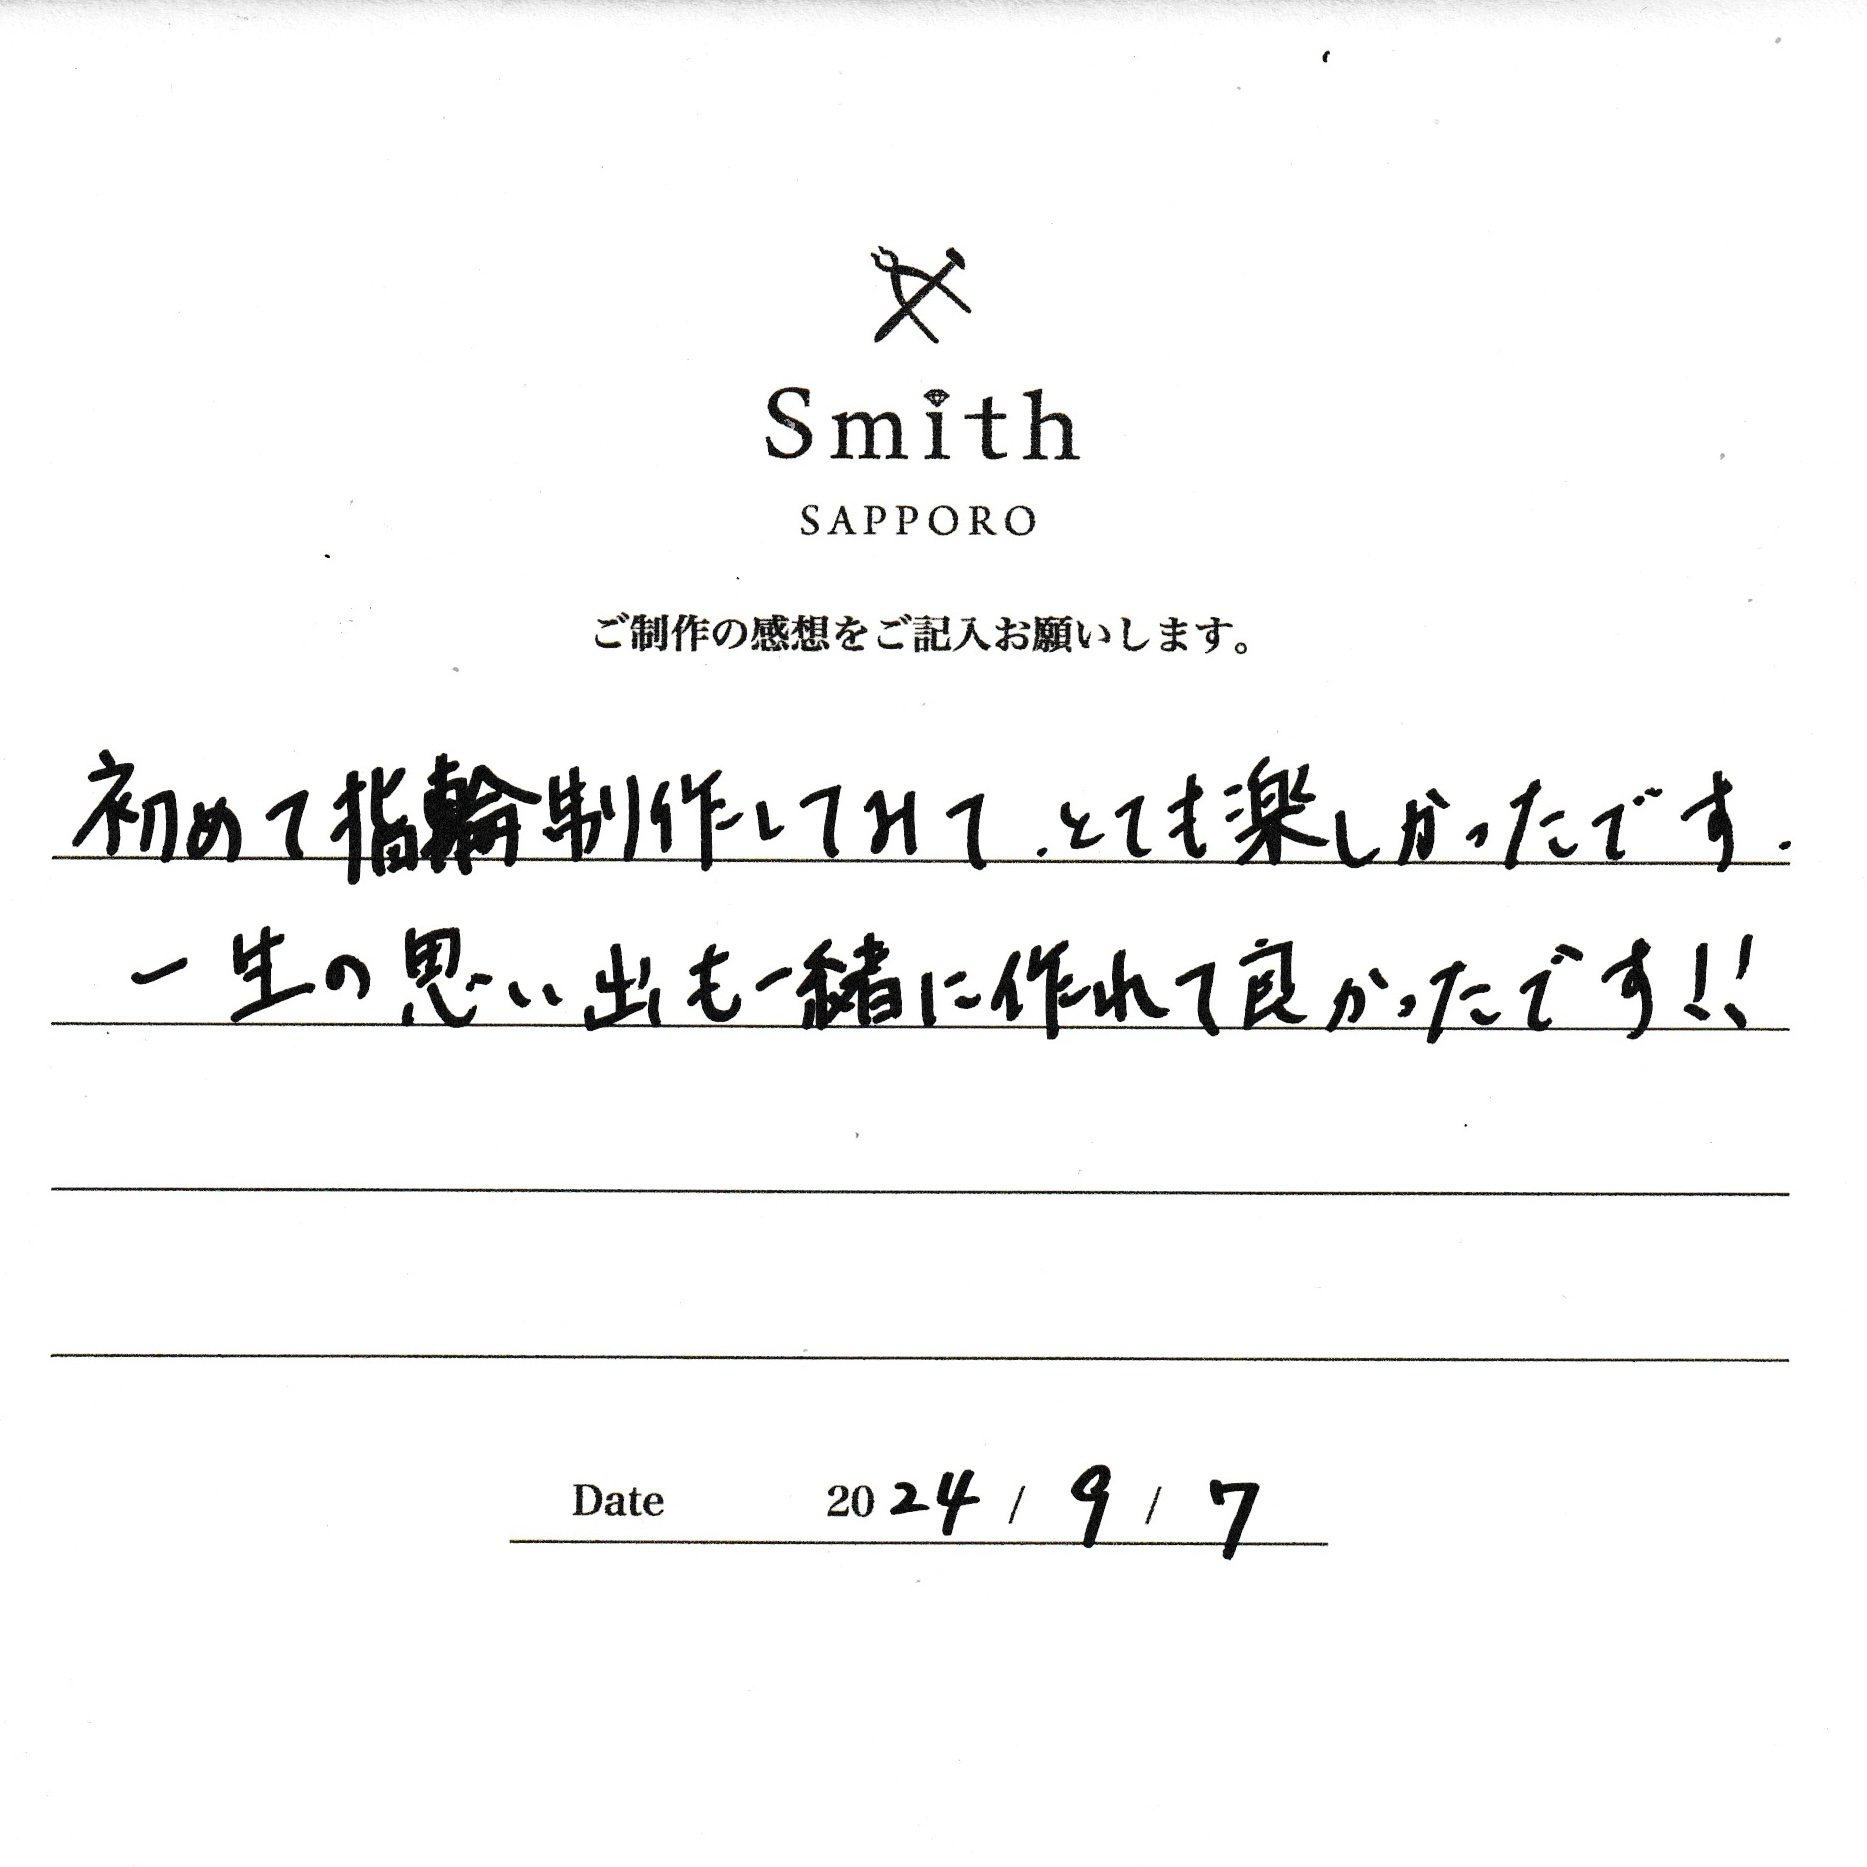 Smith
SAPPORO
ご制作の感想をご記入お願いします。
初めて指輪制作してみて、とても楽しかったです.
一生の思い出も一緒に作れて良かったです!!
Date 2024 / 9 / 7